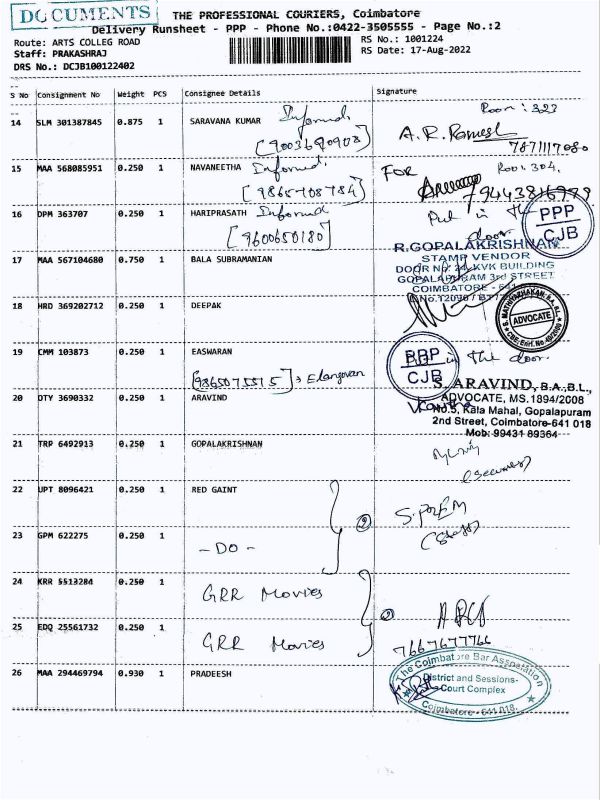 DOCUMENTS
THE PROFESSIONAL COURIERS, Coimbatore
Delivery Runsheet - PPP - Phone No.:0422-3505555 - Page No.:2
Route: ARTS COLLEG ROAD
RS No.: 1001224
Staff: PRAKASHRAJ
RS Date: 17-Aug-2022
DRS No.: DCJB100122402
S No Consignment No Weight PCS Consignee Details Signature
14 SLM 301387845 0.875 1 SARAVANA KUMAR Informd. Room : 323
[9003690908] A.R. Ramesh
7871117080
15 MAA 568085951 0.250 1 NAVANEETHA Informd. FOR Room 304.
[9865708784]
16 DPM 363707 0.250 1 HARIPRASATH Informd Put in the door
[9600650180]
PPP
CJB
17 MAA 567104680 0.750 1 BALA SUBRAMANIAN
R.GOPALAKRISHNAN
STAMP VENDOR
DOOR No: 24, KVK BUILDING
GOPALAPURAM 3rd STREET
COIMBATORE - 641
18 HRD 369202712 0.250 1 DEEPAK
ADVOCATE
19 CMM 103873 0.250 1 EASWARAN
in the door.
PPP
CJB
[9865075515] → Elangovan
20 DTY 3690332 0.250 1 ARAVIND
S. ARAVIND, B.A.,B.L.,
ADVOCATE, MS.1894/2008
No.5, Kala Mahal, Gopalapuram
2nd Street, Coimbatore-641 018
Mob: 99431 89364
21 TRP 6492913 0.250 1 GOPALKRISHNAN
22 UPT 8096421 0.250 1 RED GAINT
2
S. PREM
(Staff)
23 GPM 622275 0.250 1 - DO -
24 KRR 5513284 0.250 1 GRR Movies
2
25 EDQ 25561732 0.250 1 GRR Movies
7667677766
26 MAA 294469794 0.930 1 PRADEESH
The Coimbatore Bar Association
District and Sessions-
Court Complex
Coimbatore - 641 018.